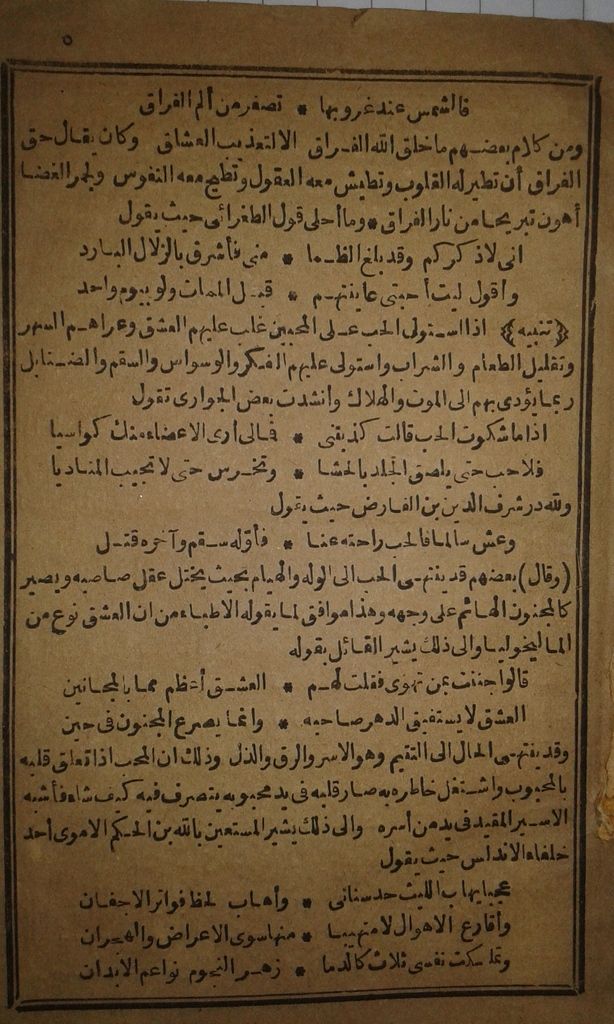 ٥
فالشمس عند غروبها * تصفر من ألم الفراق
ومن كلام بعضهم ما خلق الله الفراق الا لتعذيب العشاق وكان يقال حق
الفراق أن تطير له القلوب وتطيش معه العقول وتطيح معه النفوس ولجمر الغضا
أهون تبريحا من نار الفراق * وما أحلى قول الطغرائى حيث يقول
انى لاذكركم وقد بلغ الظما * منى فأشرق بالزلال البارد
وأقول ليت أحبتى عاينتهم * قبل الممات ولو بيوم واحد
﴿تنبيه﴾ اذا استولى الحب على المحبين غلب عليهم العشق وعراهم السهر
وتقليل الطعام والشراب واستولى عليهم الفكر والوسواس والسقم والضنا بل
ربما يؤدى بهم الى الموت والهلاك وأنشدت بعض الجوارى تقول
اذا ما شكوت الحب قالت كذبتنى * فمالى أرى الاعضاء منك كواسيا
فلا حب حتى يلصق الجلد بالحشا * وتخرس حتى لا تجيب المناديا
ولله در شرف الدين بن الفارض حيث يقول
وعش سالما فالحب راحته عنا * فأوله سقم وآخره قتل
(وقال) بعضهم قد ينتهى الحب الى الوله والهيام بحيث يختل عقل صاحبه ويصير
كالمجنون الهائم على وجهه وهذا موافق لما يقوله الاطباء من ان العشق نوع من
الماليخوليا والى ذلك يشير القائل بقوله
قالوا جننت بمن تهوى فقلت لهم * العشق أعظم مما بالمجانين
العشق لا يستفيق الدهر صاحبه * وانما يصرع المجنون فى حين
وقد ينتهى الحال الى التتيم وهو الاسر والرق والذل وذلك ان المحب اذا تعلق قلبه
بالمحبوب واشتغل خاطره به صار قلبه فى يد محبوبه يتصرف فيه كيف شاء فأشبه
الاسير المقيد فى يد من أسره والى ذلك يشير المستعين بالله بن الحكم الاموى أحد
خلفاء الاندلس حيث يقول
عجبا يهاب الليث حد سنانى * وأهاب لحظ فواتر الاجفان
وأقارع الاهوال لا متهيبا * منها سوى الاعراض والهجران
وتملكت نفسى ثلاث كالدما * زهر النجوم نواعم الابدان